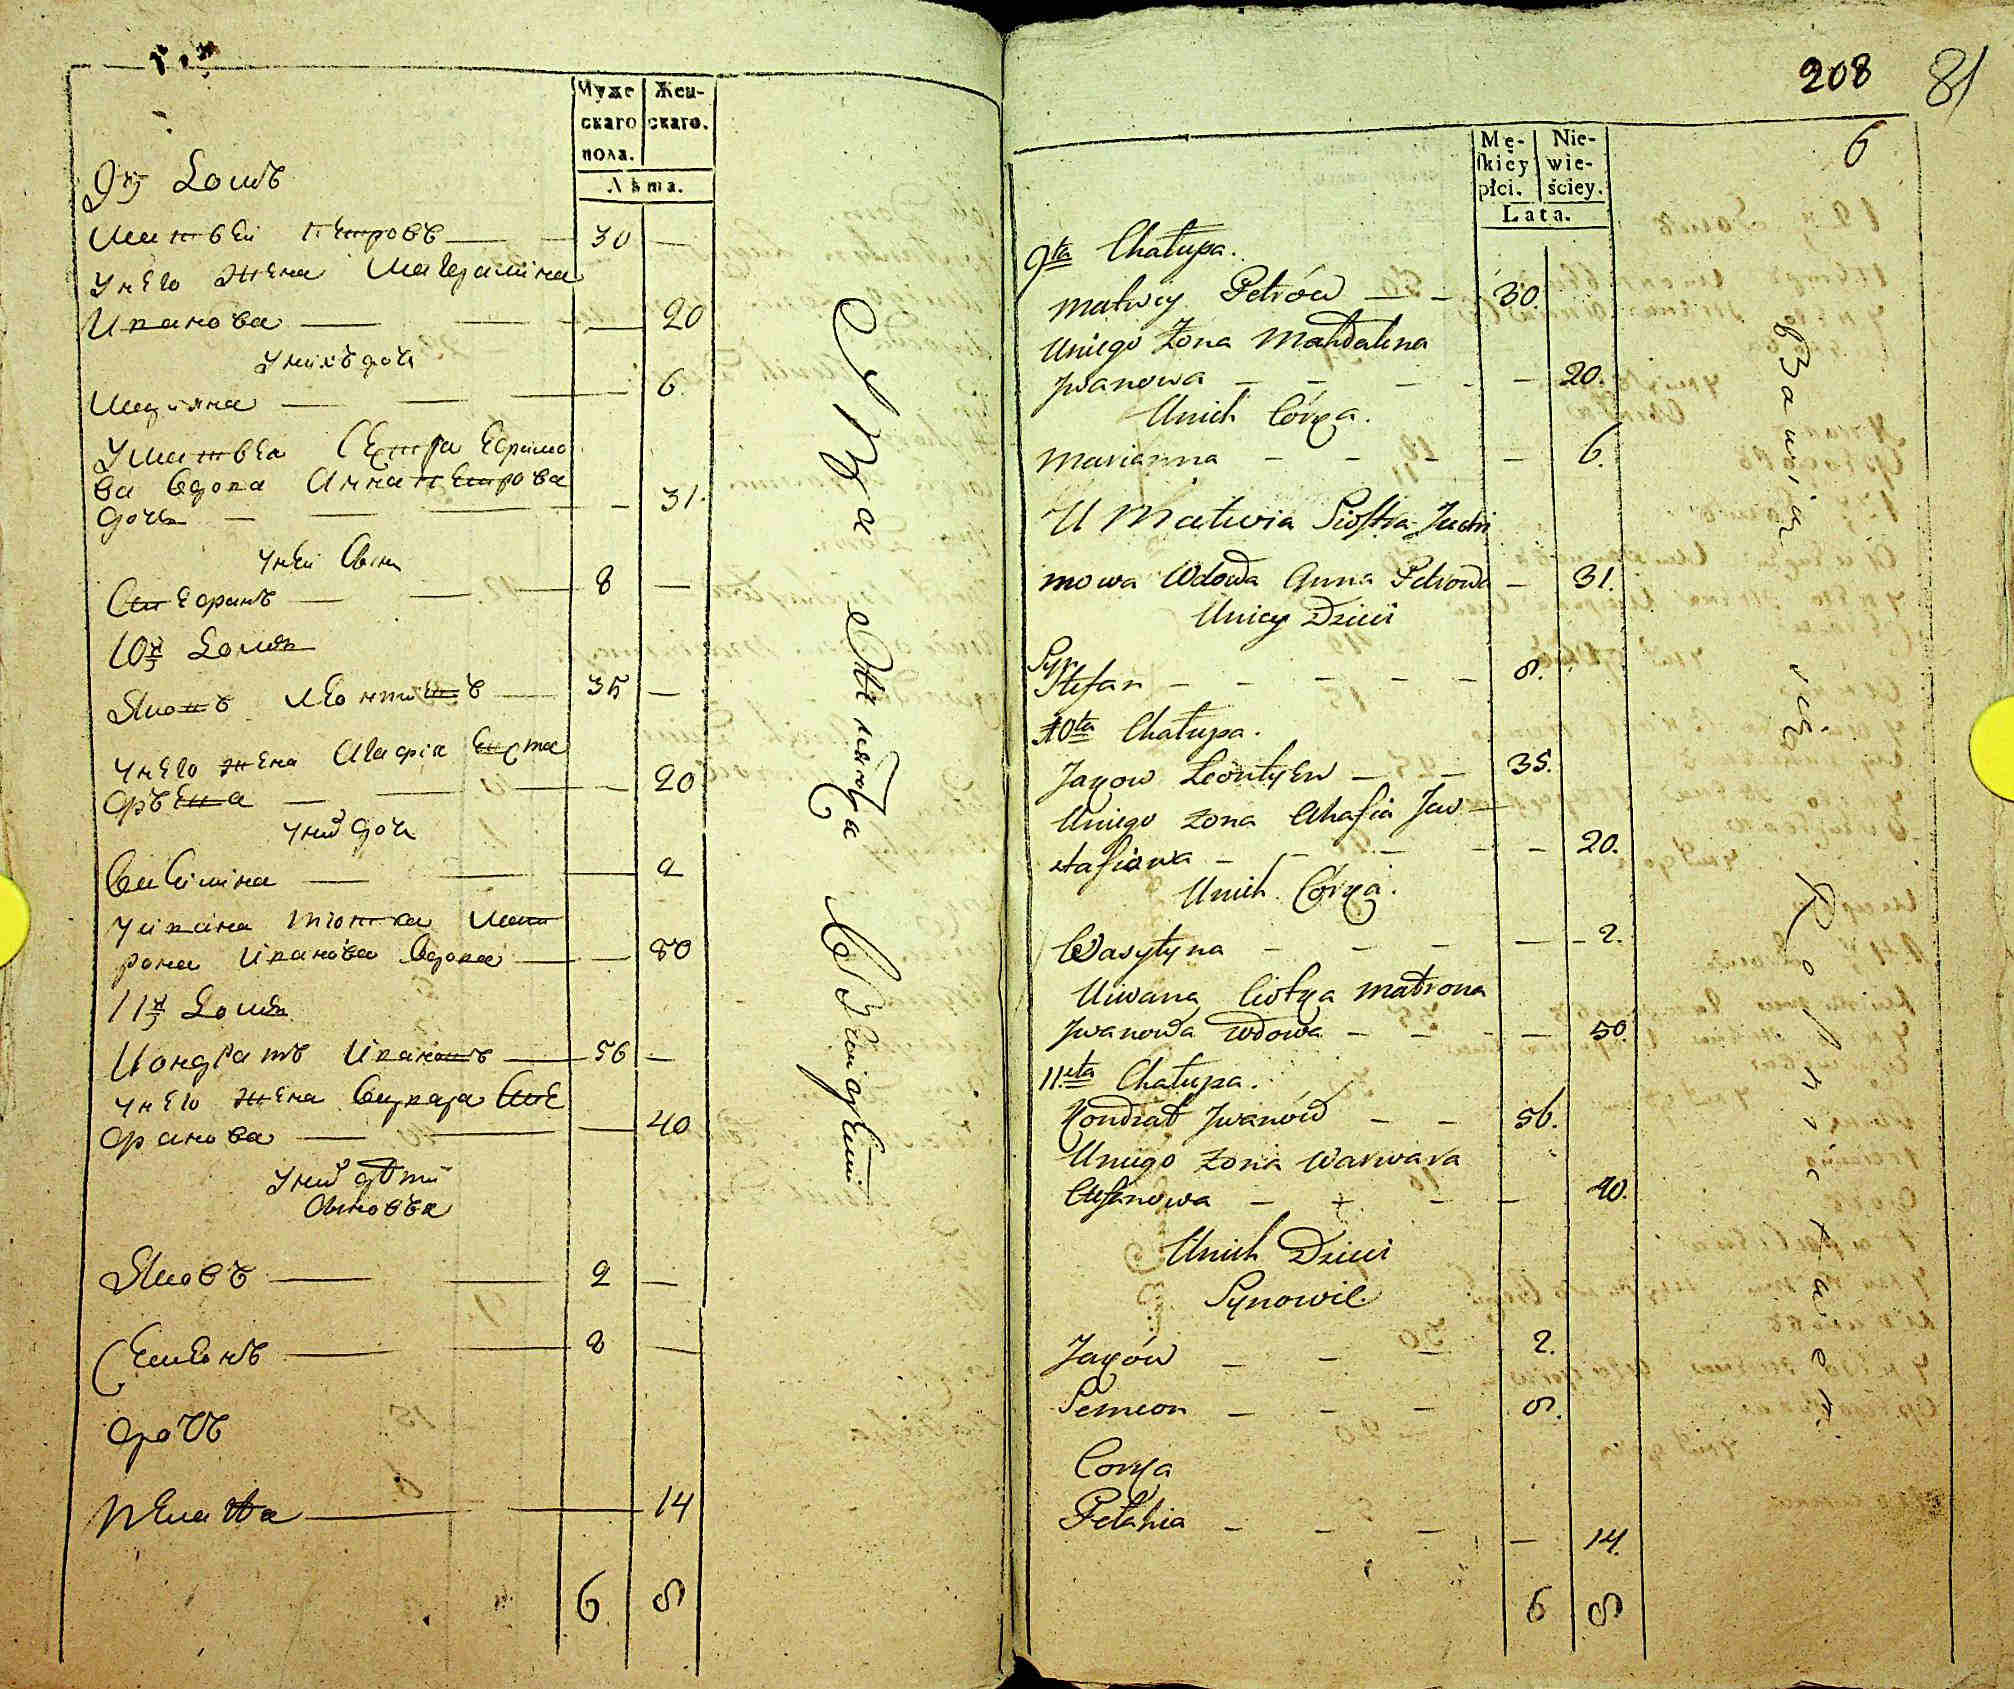 Муже
скаго
пола.
Жен-
скаго.
Лѣта.
9й Домъ
Матвей Петровъ 30
У него жена Магдалина
Иванова 20
У нихъ дочь
Марьяна 6.
У Матвея Сестра Ефимо
ва вдова Анна Петрова
дочь 31.
У ней сынъ
Стефанъ 8
10й Домъ
Яковъ Леонтьевъ 35
У него жена Агафія Евста
фьева 20
У них дочь
Василина 2
У Ивана тіотка Мат
рона Иванова вдова 50
11й Домъ
Кондратъ Ивановъ 56
У него жена Варвара Сте
фанова 40
У них дѣти
Сыновья
Яковъ 2
Семионъ 8
дочь
Пелагея 14
6 8
208
81
6
Mę-
skiey
płci.
Nie-
wie-
ściey.
Lata.
9ta Chałupa.
Matwiey Petrów 30.
U niego Żona Mahdalena
Jwanowa 20.
U nich Córka.
Marianna 6.
U Matwia Siostra Juchi
mowa Wdowa Anna Petrowa 31.
U niey Dzieci
Syn
Stefan 8.
10ta Chałupa.
Jakow Leontyew 35.
U niego żona Ahafia Jew
stafiowa 20.
U nich Córka.
Wasylyna 2.
U Iwana Ciotka Matrona
Jwanowa wdowa 50.
11sta Chałupa.
Kondrat Jwanów 56.
U niego żona Warwara
Stefanowa 40.
U nich Dzieci
Synowie
Jaków 2.
Semion 8.
Corka
Petahia 14.
6 8
Bawią się